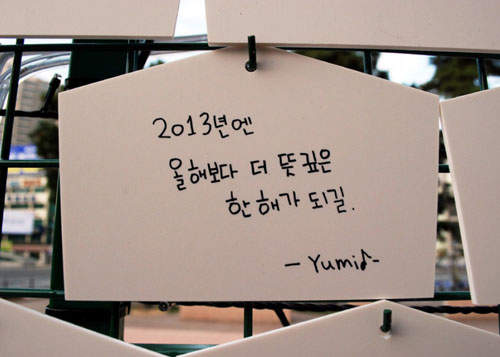 2013년엔
올해보다 더 뜻깊은
한해가 되길.
- Yumi♪-